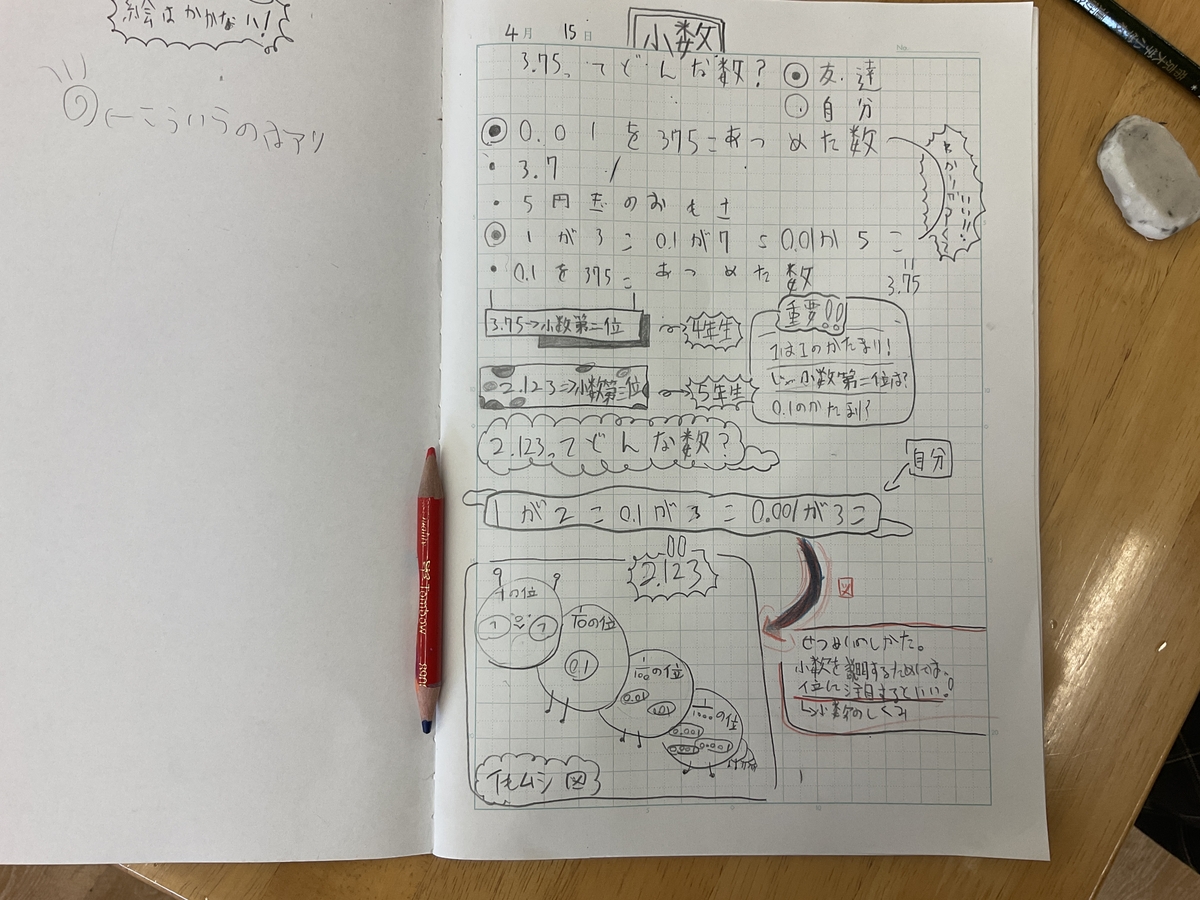 絵はかかない!
←こういうのはアリ
4月 15日
小数
No.
3.75ってどんな数?
友達
自分
0.01を375こあつめた数
3.7
5円玉のおもさ
1が3こ 0.1が7こ 0.01が5こ
0.1を375こあつめた数
3.75
わかりやすくていい!!
3.75→小数第二位
4年生
2.123⇒小数第三位
5年生
重要!!
1は1のかたまり!
じゃあ小数第二位は?
0.1のかたまり?
2.123ってどんな数?
自分
1が2こ 0.1が3こ 0.001が3こ
2.123
1の位
1 1
1/10の位
0.1
1/100の位
0.01 0.01
1/1000の位
0.001 0.001 0.001
イモムシ図
図
せつめいのしかた。
小数を説明するためには、
位に注目するといい!
↳小数のしくみ
Tombow